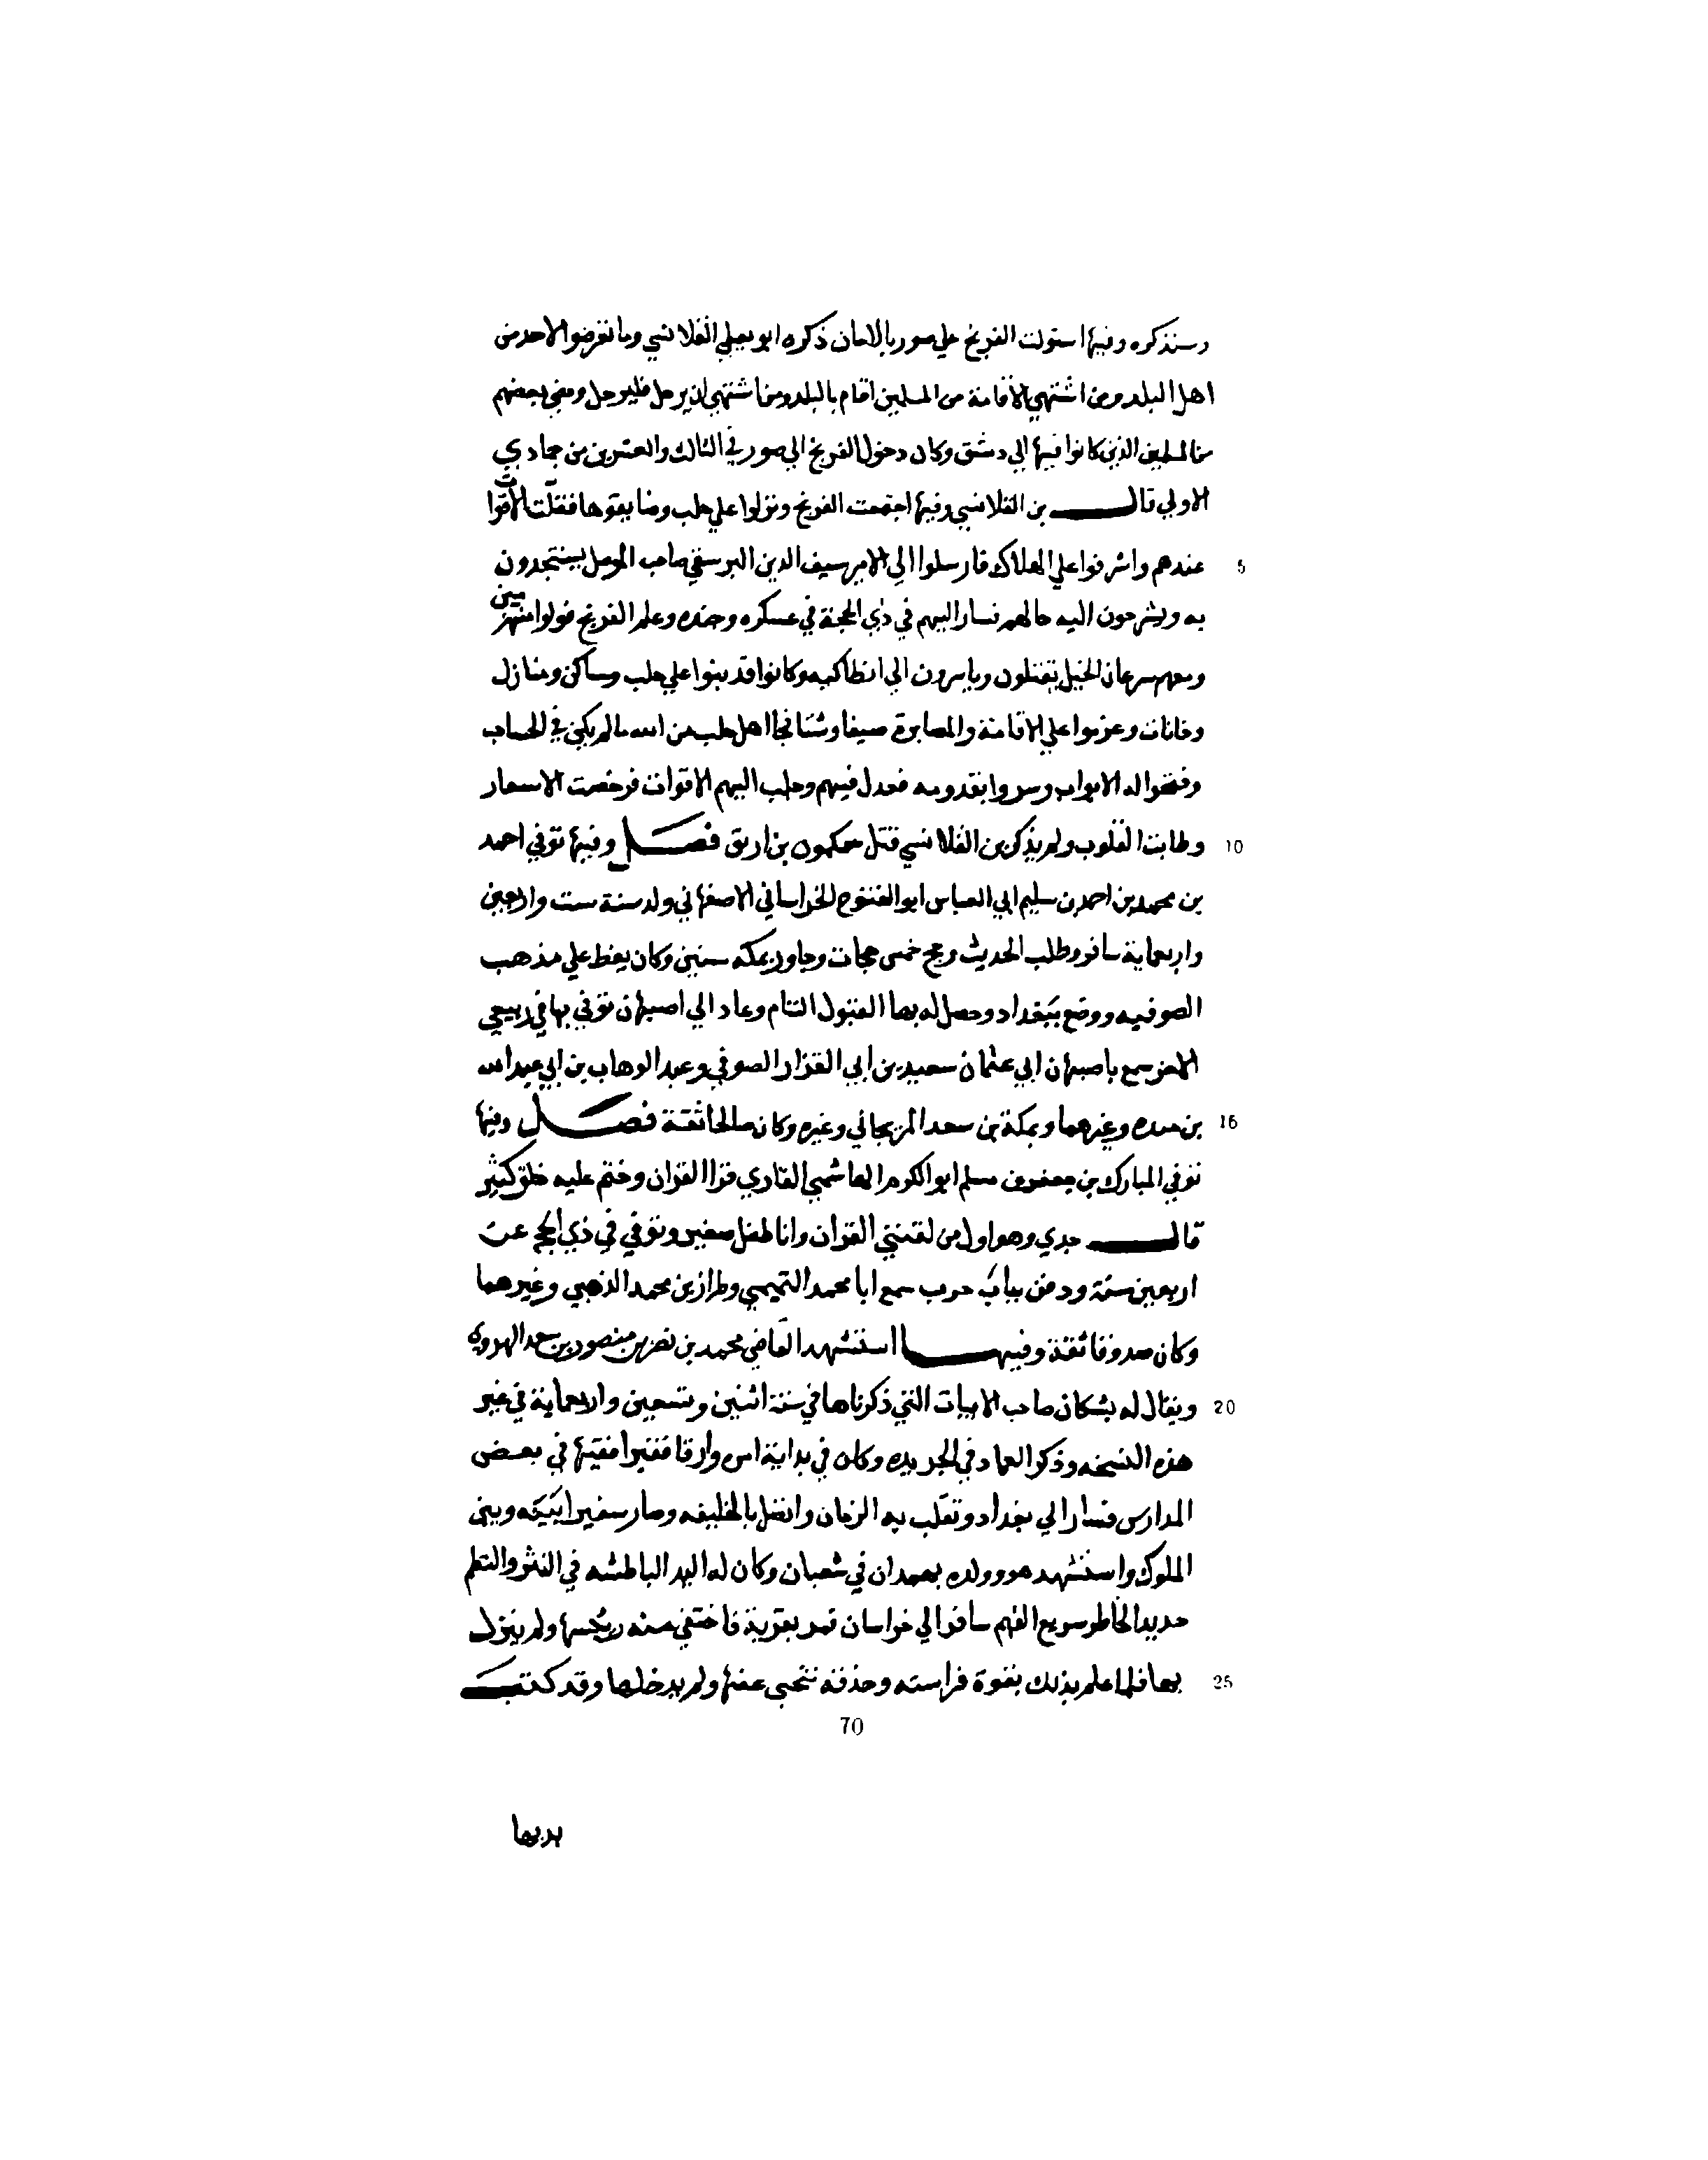 وسنذكره وفيها استولت الفرنج علي صور بالامان ذكره ابو يعلي القلانسي وما تعرضوا لاحد من
اهل البلد ومن اشتهي الاقامة من المسلمين اقام بالبلد ومن اشتهي ان يرحل فليرحل ومضي بعضهم
من المسلمين الذين كانوا فيها الي دمشق وكان دخول الفرنج الي صور في الثالث والعشرين من جمادي
الاولي قال بن القلانسي وفيها اجتمعت الفرنج ونزلوا علي حلب وضايقوها فقلت الاقوات
5 عندهم واشرفوا علي الهلاك فارسلوا الي الامير سيف الدين البرسقي صاحب الموصل يستنجدون
به ويشرحون اليه حالهم فسار اليهم في ذي الحجة في عسكره وجنده وعلم الفرنج فولوا منهزمين
ومعهم سرعان الخيل يقتلون وياسرون الي انطاكيه وكانوا قد بنوا علي حلب مساكن ومنازل
وخانات وعزموا علي الاقامة والمصابرة صيفا وشتا فجا اهل حلب من الله ما لم يكن في الحساب
وفتحوا له الابواب وسروا بقدومه فعدل فيهم وجلب اليهم الاقوات فرخصت الاسعار
10 وطابت القلوب ولم يذكر بن القلانسي قتل بن ارتق فصل وفيها توفي احمد
بن محمد بن احمد بن سليم ابي العباس ابو الفتوح الخراساني الاصفهاني ولد سنة ست واربعين
واربعماية سافر وطلب الحديث وحج خمس حجات وجاور بمكه سنين وكان يعظ علي مذهب
الصوفيه ووضع ببغداد وحصل له بها القبول التام وعاد الي اصبهان توفي بها في ربيع
الاخر سمع باصبهان ابي عثمان سعيد بن ابي القزاز الصوفي وعبد الوهاب بن ابي عبد الله
15 بن منده وغيرهما وبمكة بن سعد الزنجاني وغيره وكان صالحا ثقة فصل وفيها
توفي المبارك بن جعفر بن مسلم ابو الكرم الهاشمي القاري قرا القران وختم عليه خلق كثير
قال جدي وهو اول من لقنني القران وانا طفل صغير وتوفي في ذي الحج عن
اربعين سنة ودفن بباب حرب سمع ابا محمد التميمي وطراز بن محمد الذهبي وغيرهما
وكان صدوقا ثقة وفيها استشهد القاضي محمد بن نصر بن منصور بن سعد الهروي
20 ويقال له بشكان صاحب الابيات التي ذكرناها في سنة اثنين وتسعين واربعماية في غير
هذه النسخه وذكر العماد في الجريده وكان في بداية امره وارقا فقيرا فقيها في بعض
المدارس فسار الي بغداد وتقلب به الزمان واتصل بالخليفه وصار سفيرا بينه وبين
الملوك واستشهد هو وولده بهمدان في شعبان وكان له اليد الباطشه في النثر والنظم
حديد الخاطر سريع الفهم سافر الي خراسان فمر بقرية فاختفي منه رئيسها ولم ينزل
25 بها فلما علم بذلك بقوة فراسته وحذقه تنحي عنها ولم يدخلها وقد كتب
70
بديها